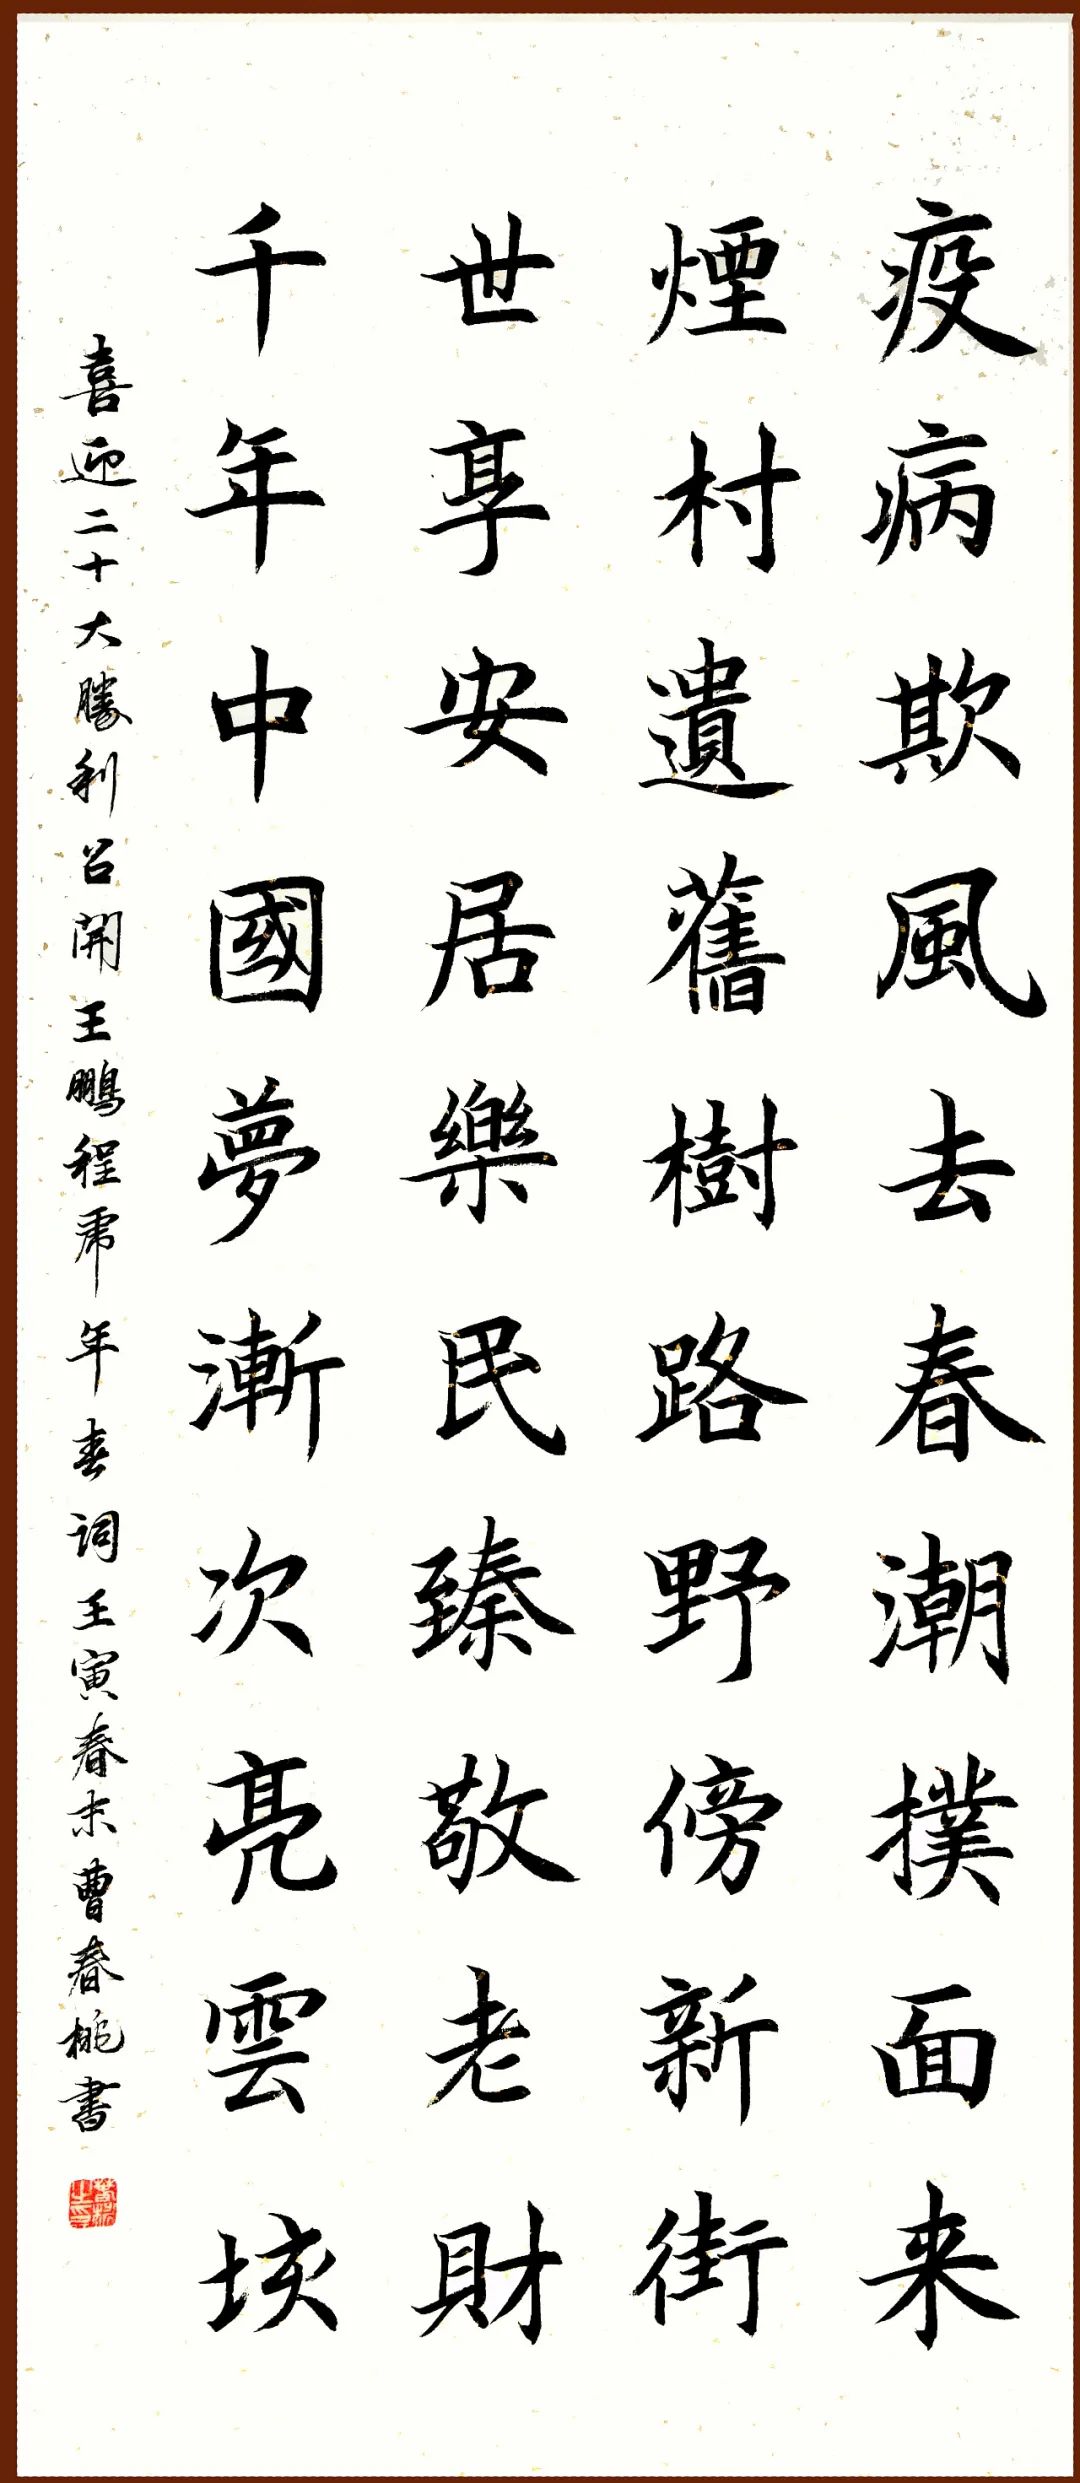 疫病欺風去春潮撲面来
煙村遺舊樹路野傍新街
世享安居樂民臻敬老財
千年中國夢漸次亮雲垓
喜迎二十大勝利召開王鵬程虎年春词壬寅春末曹春桃書